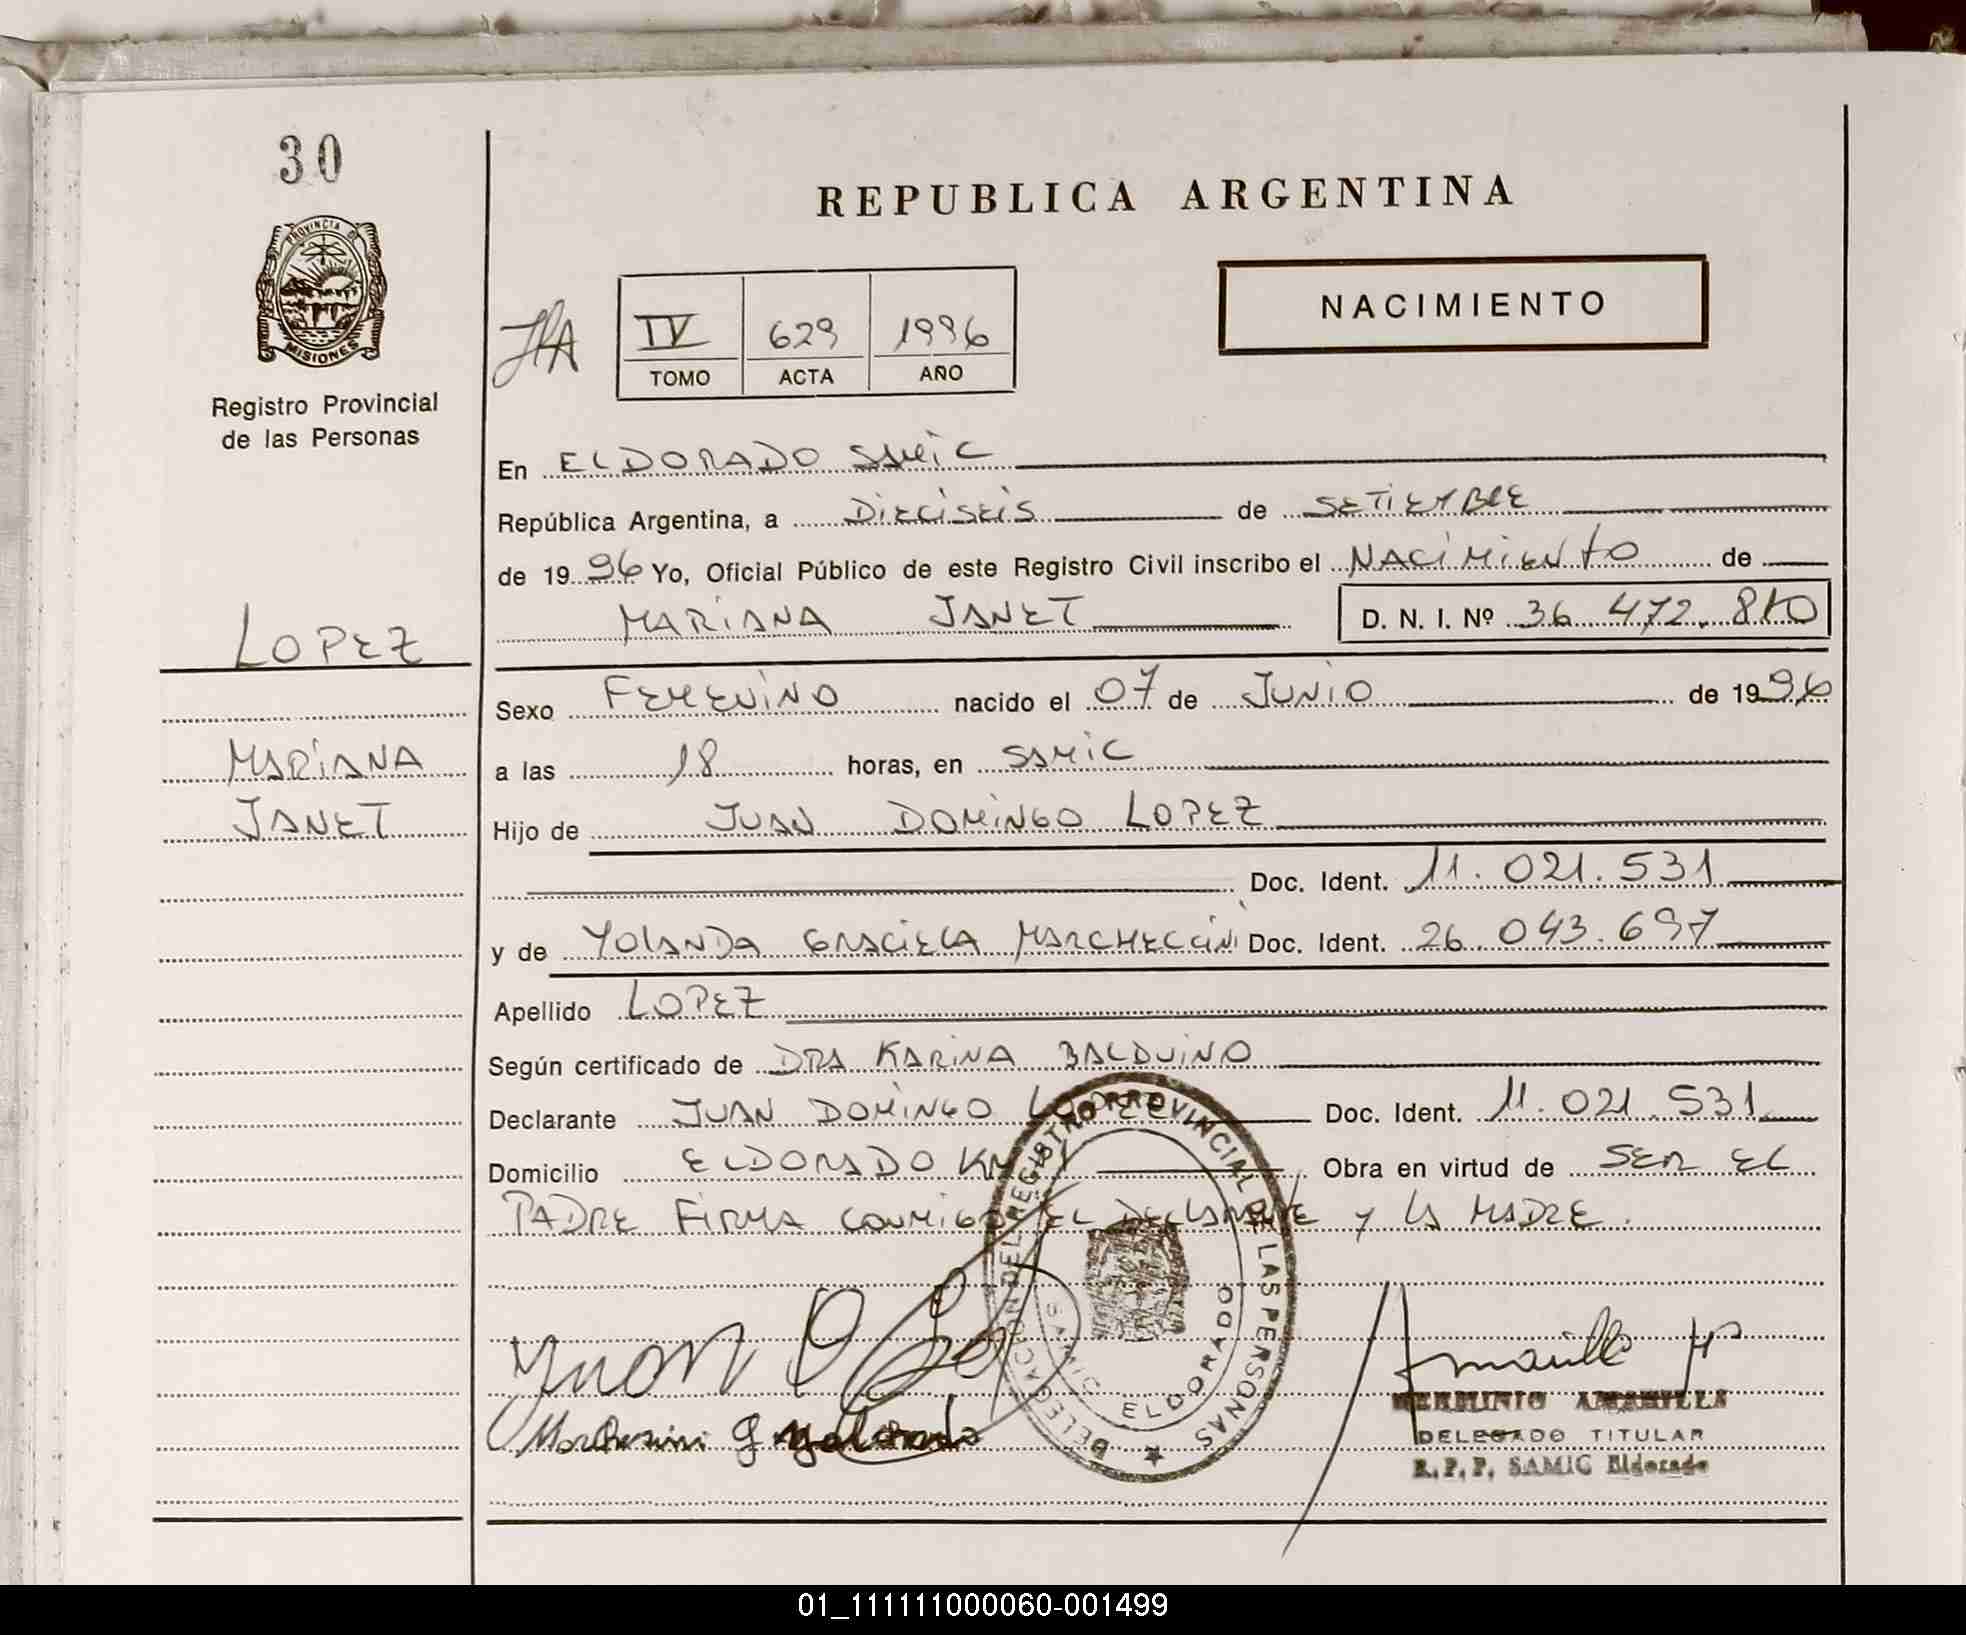 30
REPUBLICA ARGENTINA
PROVINCIA DE
MISIONES
NACIMIENTO
IV 629 1996
TOMO ACTA AÑO
Registro Provincial
de las Personas
En ELDORADO SAMIC
República Argentina, a DIECISEIS de SETIEMBRE
de 1996 Yo, Oficial Público de este Registro Civil inscribo el NACIMIENTO de
MARIANA JANET D. N. I. Nº 36.472.810
LOPEZ
MARIANA
JANET
Sexo FEMENINO nacido el 07 de JUNIO de 1996
a las 18 horas, en SAMIC
Hijo de JUAN DOMINGO LOPEZ
Doc. Ident. 11.021.531
y de YOLANDA GRACIELA Doc. Ident. 26.043.697
Apellido LOPEZ
Según certificado de DRA KARINA BALDUINO
Declarante JUAN DOMINGO LOPEZ Doc. Ident. 11.021.531
Domicilio ELDORADO KM Obra en virtud de SER EL
PADRE FIRMA CONMIGO EL DECLARANTE Y LA MADRE.
DELEGACION DEL REGISTRO PROVINCIAL DE LAS PERSONAS
SAMIC ELDORADO
Juan D
Amarilla H
HERMINIO AMARILLA
DELEGADO TITULAR
R.P.P. SAMIC Eldorado
01_111111000060-001499